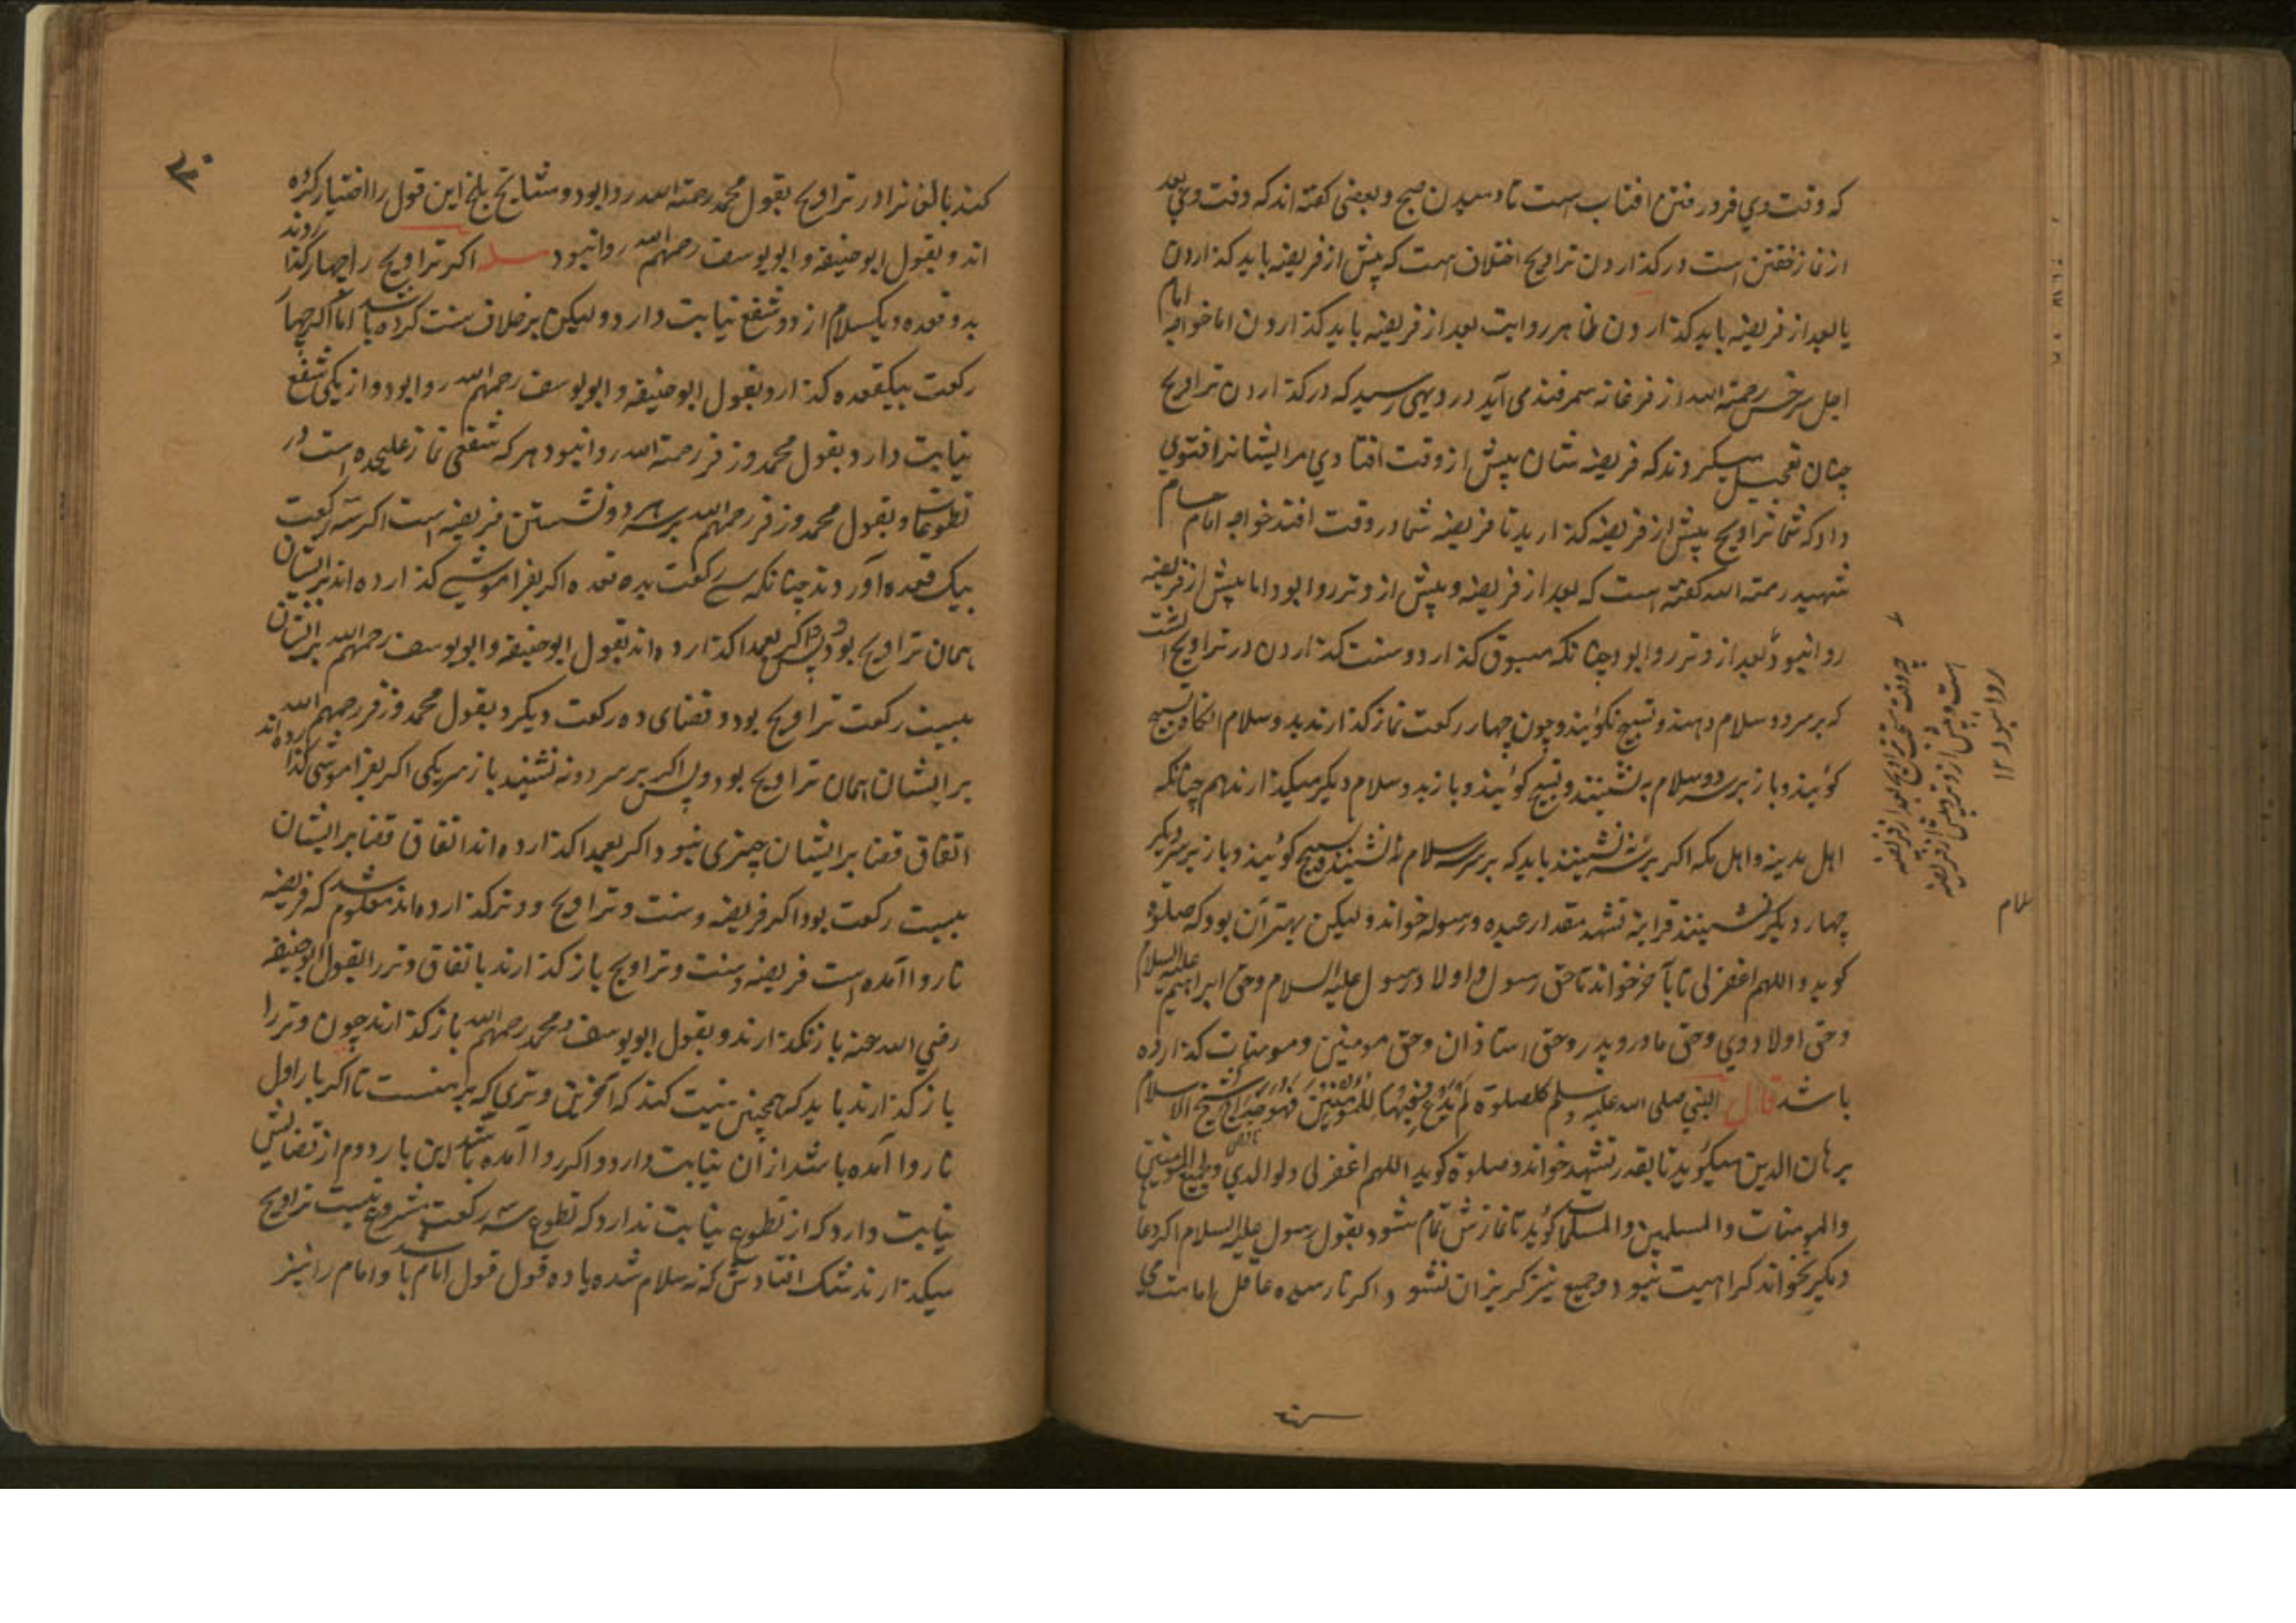 که وقت وي فرورفتن افتاب است تا دمیدن صبح و بعضی کفته اند که وقت وي بعد
از نماز خفتن است و در کذاردن تراویح اختلاف است که پیش از فریضه باید کذاردن
یا بعد از فریضه باید کذاردن ظاهر روایت بعد از فریضه باید کذاردن اما خواجه امام
اجل سرخسی رحمته الله از فرغانه سمرقند می آید در دیهی رسید که در کذاردن تراویح
چنان تعجیل میکردند که فریضه شان پیش از وقت افتادي مر ایشانرا فتوي
داد که شما تراویح پیش از فریضه کذارید تا فریضه شما در وقت افتد خواجه امام حسام
شهید رحمته الله کفته است که بعد از فریضه و پیش از وتر روا بود اما پیش از فریضه
روا نبود و بعد از وتر روا بود چنانکه مسبوق کذارد و سنت کذاردن در تراویح انست
که بر سر دو سلام دهند و تسبیح نکویند و چون چهار رکعت نماز کذارند بدو سلام انکاه تسبیح
کویند و باز بر سر دو سلام بنشینند و تسبیح کویند و باز بدو سلام دیکر میکذارند هم چنانکه
اهل مدینه و اهل مکه اکر بنشینند باید که بر سر سلام بنشینند و تسبیح کویند و باز بر سر دیکر
چهار دیکر نشینند قراءة تشهد مقدار عبده و رسوله خواند و لیکن بهتر آن بود که صلوة
کوید و اللهم اغفر لی تا بآخر خواند تا حق رسول و اولاد رسول علیه السلام و حق ابراهیم علیه السلام
و حق اولاد وي و حق مادر و پدر و حق استاذان و حق مومنین و مومنات کذارده
باشد قال النبي صلی الله علیه و سلم کل صلوة لم یدع فیها للمؤمنین فهو خداج شیخ الاسلام
برهان الدین میکوید تا بقدر تشهد خواند و صلوة کوید اللهم اغفر لی ولوالدي ولجمیع المؤمنین
والمومنات والمسلمین والمسلمات کوید تا نمازش تمام شود بقول رسول علیه السلام اکر دعا
دیکر بخواند کراهیت نبود و جمیع نیز کریزان نشو و اکر نارسیده عاقل امامت می
چه وقت مستحب تراویح بعد از فریضه
است و پیش از وتر و پیش از فریضه
روا نبود ۱۲
کنند بالغانرا در تراویح بقول محمد رحمته الله روا بود و مشایخ بلخ این قول را اختیار کرده
اند و بقول ابو حنیفه و ابو یوسف رحمهم الله روا نبود مسله اکر تراویح را چهار کذاردند
بدو قعده و یکسلام از دو شفع نیابت دارد و لیکن بر خلاف سنت کرده باشد اما اکر چهار
رکعت بیکقعده کذارد بقول ابو حنیفه و ابو یوسف رحمهم الله روا بود و از یکی شفع
نیابت دارد بقول محمد و زفر رحمته الله روا نبود هر که شفعی نماز علیحده است در
تطوعات و بقول محمد و زفر رحمهم الله بر سر هر دو نشستن فریضه است اکر سی رکعت
بیک قعده آوردند چنانکه سی رکعت بده قعده اکر بفراموشی کذارده اند بر ایشان
همان تراویح بود و پس اکر بعمدا کذارده اند بقول ابو حنیفه و ابو یوسف رحمهم الله بر ایشان
بیست رکعت تراویح بود و قضای ده رکعت دیکر و بقول محمد و زفر رحمهم الله
بر ایشان همان تراویح بود و پس اکر بر سر دو نه نشیند باز سر یکی اکر بفراموشی کذارده اند
اتفاق قضا بر ایشان چیزی نبود و اکر بعمدا کذارده اند اتفاق قضا بر ایشان
بیست رکعت بود اکر فریضه و سنت و تراویح و وتر کذارده اند معلوم شد که فریضه
ناروا آمده است فریضه و سنت و تراویح باز کذارند باتفاق و وتر را بقول ابو حنیفه
رضي الله عنه باز نکذارند و بقول ابو یوسف و محمد رحمهم الله باز کذارند چون وتر را
باز کذارند باید که همچنین نیت کند که آخرین وتري که بر منست تا اکر بار اول
ناروا آمده باشد از آن نیابت دارد و اکر روا آمده باشد این بار دوم از قضایش
نیابت دارد که از تطوع نیابت ندارد که تطوع سه رکعت مشروع نیست تراویح
میکذارند شک افتادش که نه سلام شده یا ده قول قول امام باشد و امام را نیز